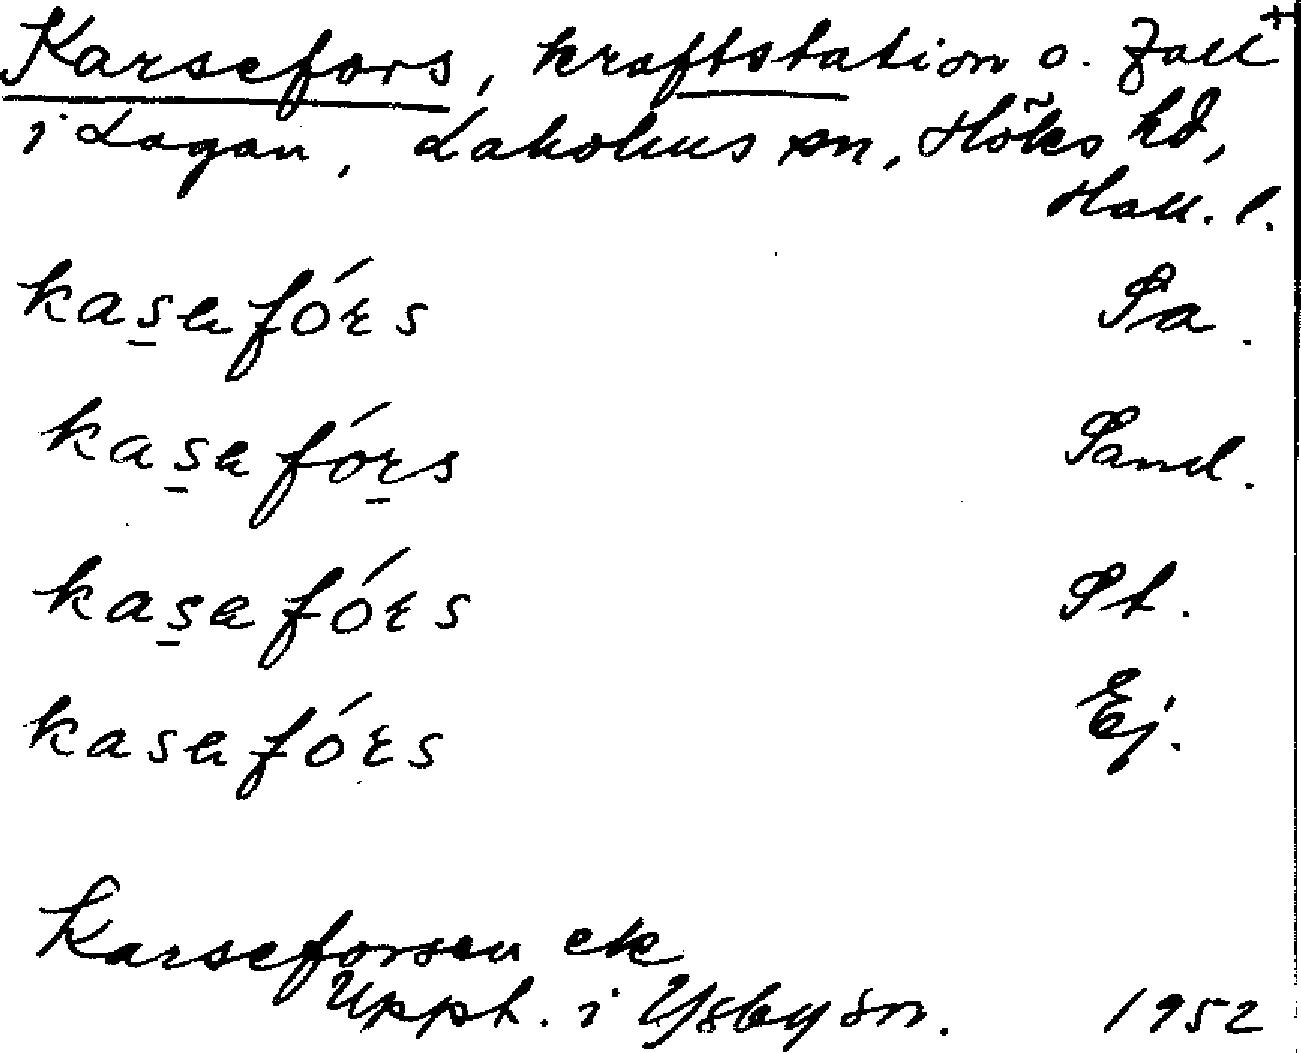 Karsefors, kraftstation o. fall +
i Lagan, Laholms sn, Höks hd,
Hall. l.
kasafórs Pa.
kasafórs Pand.
kasafórs Pt.
kasafórs Ej.
Karseforsen ek
Uppt. i Ysby sn. 1952